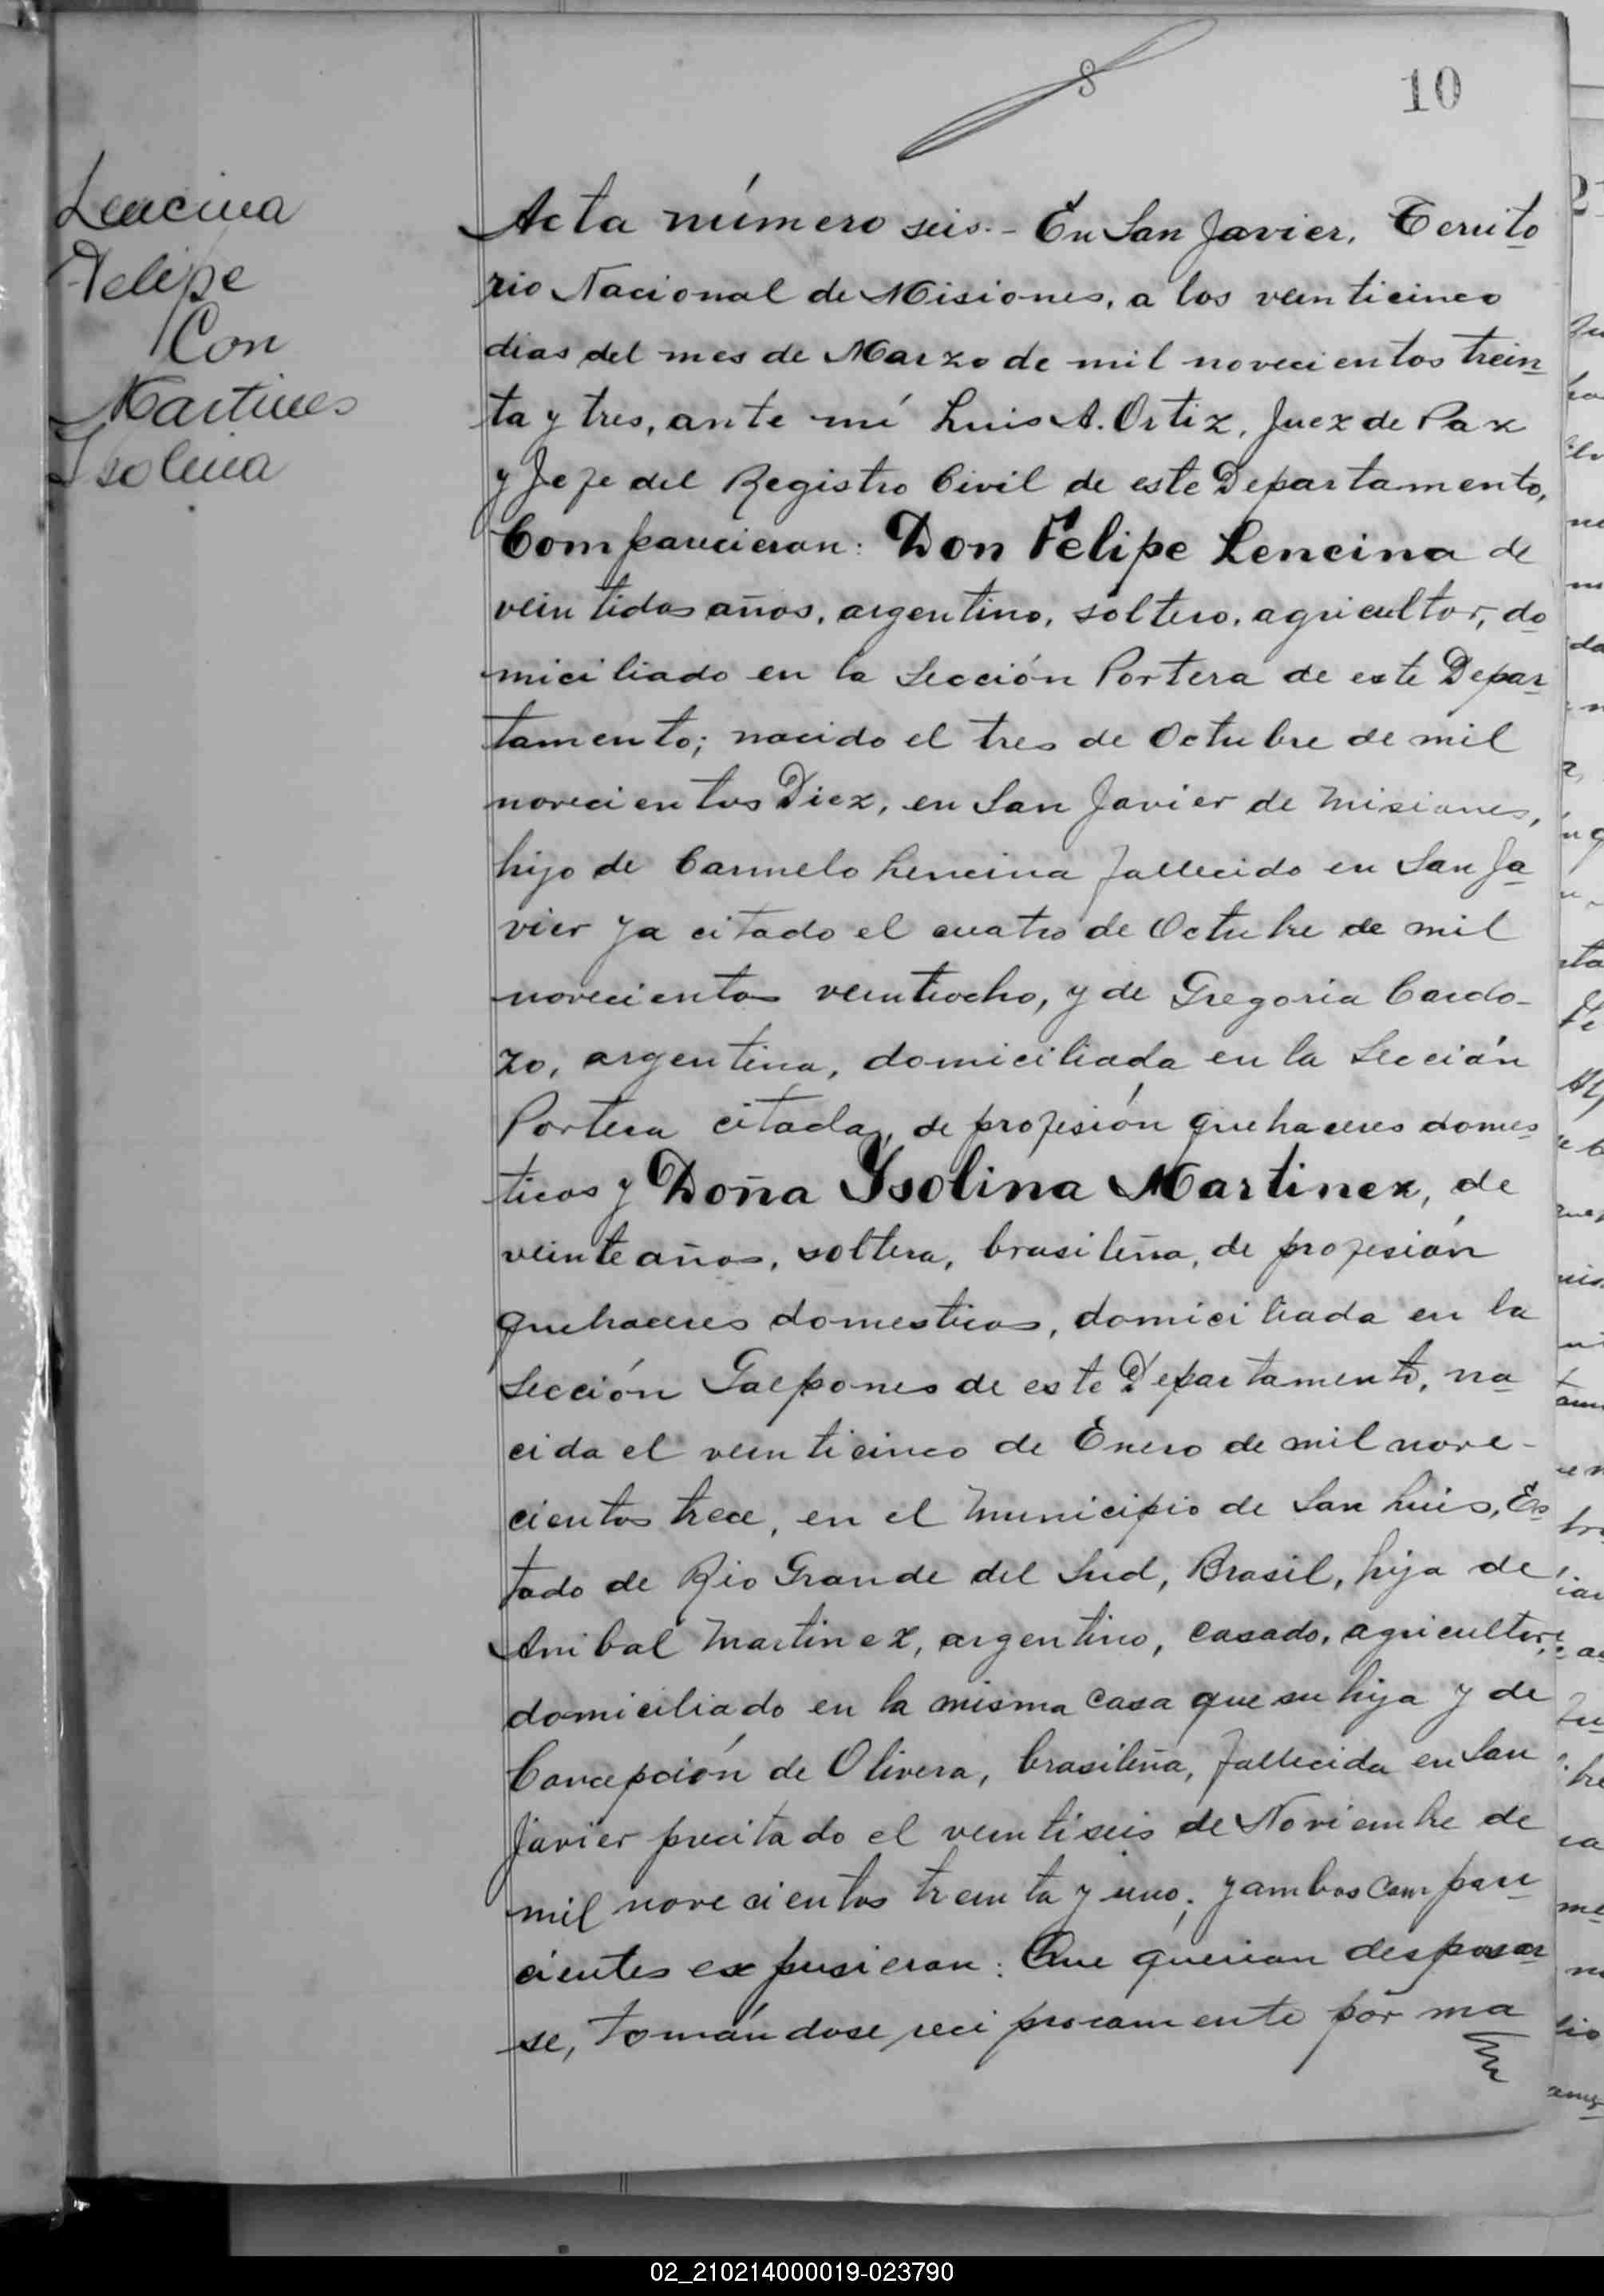 8
10
Lencina
Felipe
Con
Martines
Isolina
Acta número seis.- En San Javier, Territo
rio Nacional de Misiones, a los veinticinco
dias del mes de Marzo de mil novecientos trein
ta y tres, ante mí Luis A. Ortiz, Juez de Paz
y Jefe del Registro Civil de este Departamento,
Comparecieron: Don Felipe Lencina de
veintidos años, argentino, soltero, agricultor, do
miciliado en la Sección Portera de este Depar
tamento; nacido el tres de Octubre de mil
novecientos Diez, en San Javier de Misiones,
hijo de Carmelo Lencina fallecido en San Ja
vier ya citado el cuatro de Octubre de mil
novecientos veintiocho, y de Gregoria Cardo-
zo, argentina, domiciliada en la Sección
Portera citada, de profesión quehaceres domes
ticos y Doña Ysolina Martinez, de
veinte años, soltera, brasileña, de profesión
quehaceres domesticos, domiciliada en la
Sección Galpones de este Departamento, na
cida el veinticinco de Enero de mil nove-
cientos trece, en el Municipio de San Luis, Es
tado de Rio Grande del Sud, Brasil, hija de
Anibal Martinez, argentino, casado, agricultor,
domiciliado en la misma casa que su hija y de
Concepción de Olivera, brasileña, fallecida en San
Javier precitado el veintiseis de Noviembre de
mil novecientos treinta y uno; y ambos compare
cientes expusieron: Que querian desposar
se, tomándose reciprocamente por ma
02_210214000019-023790